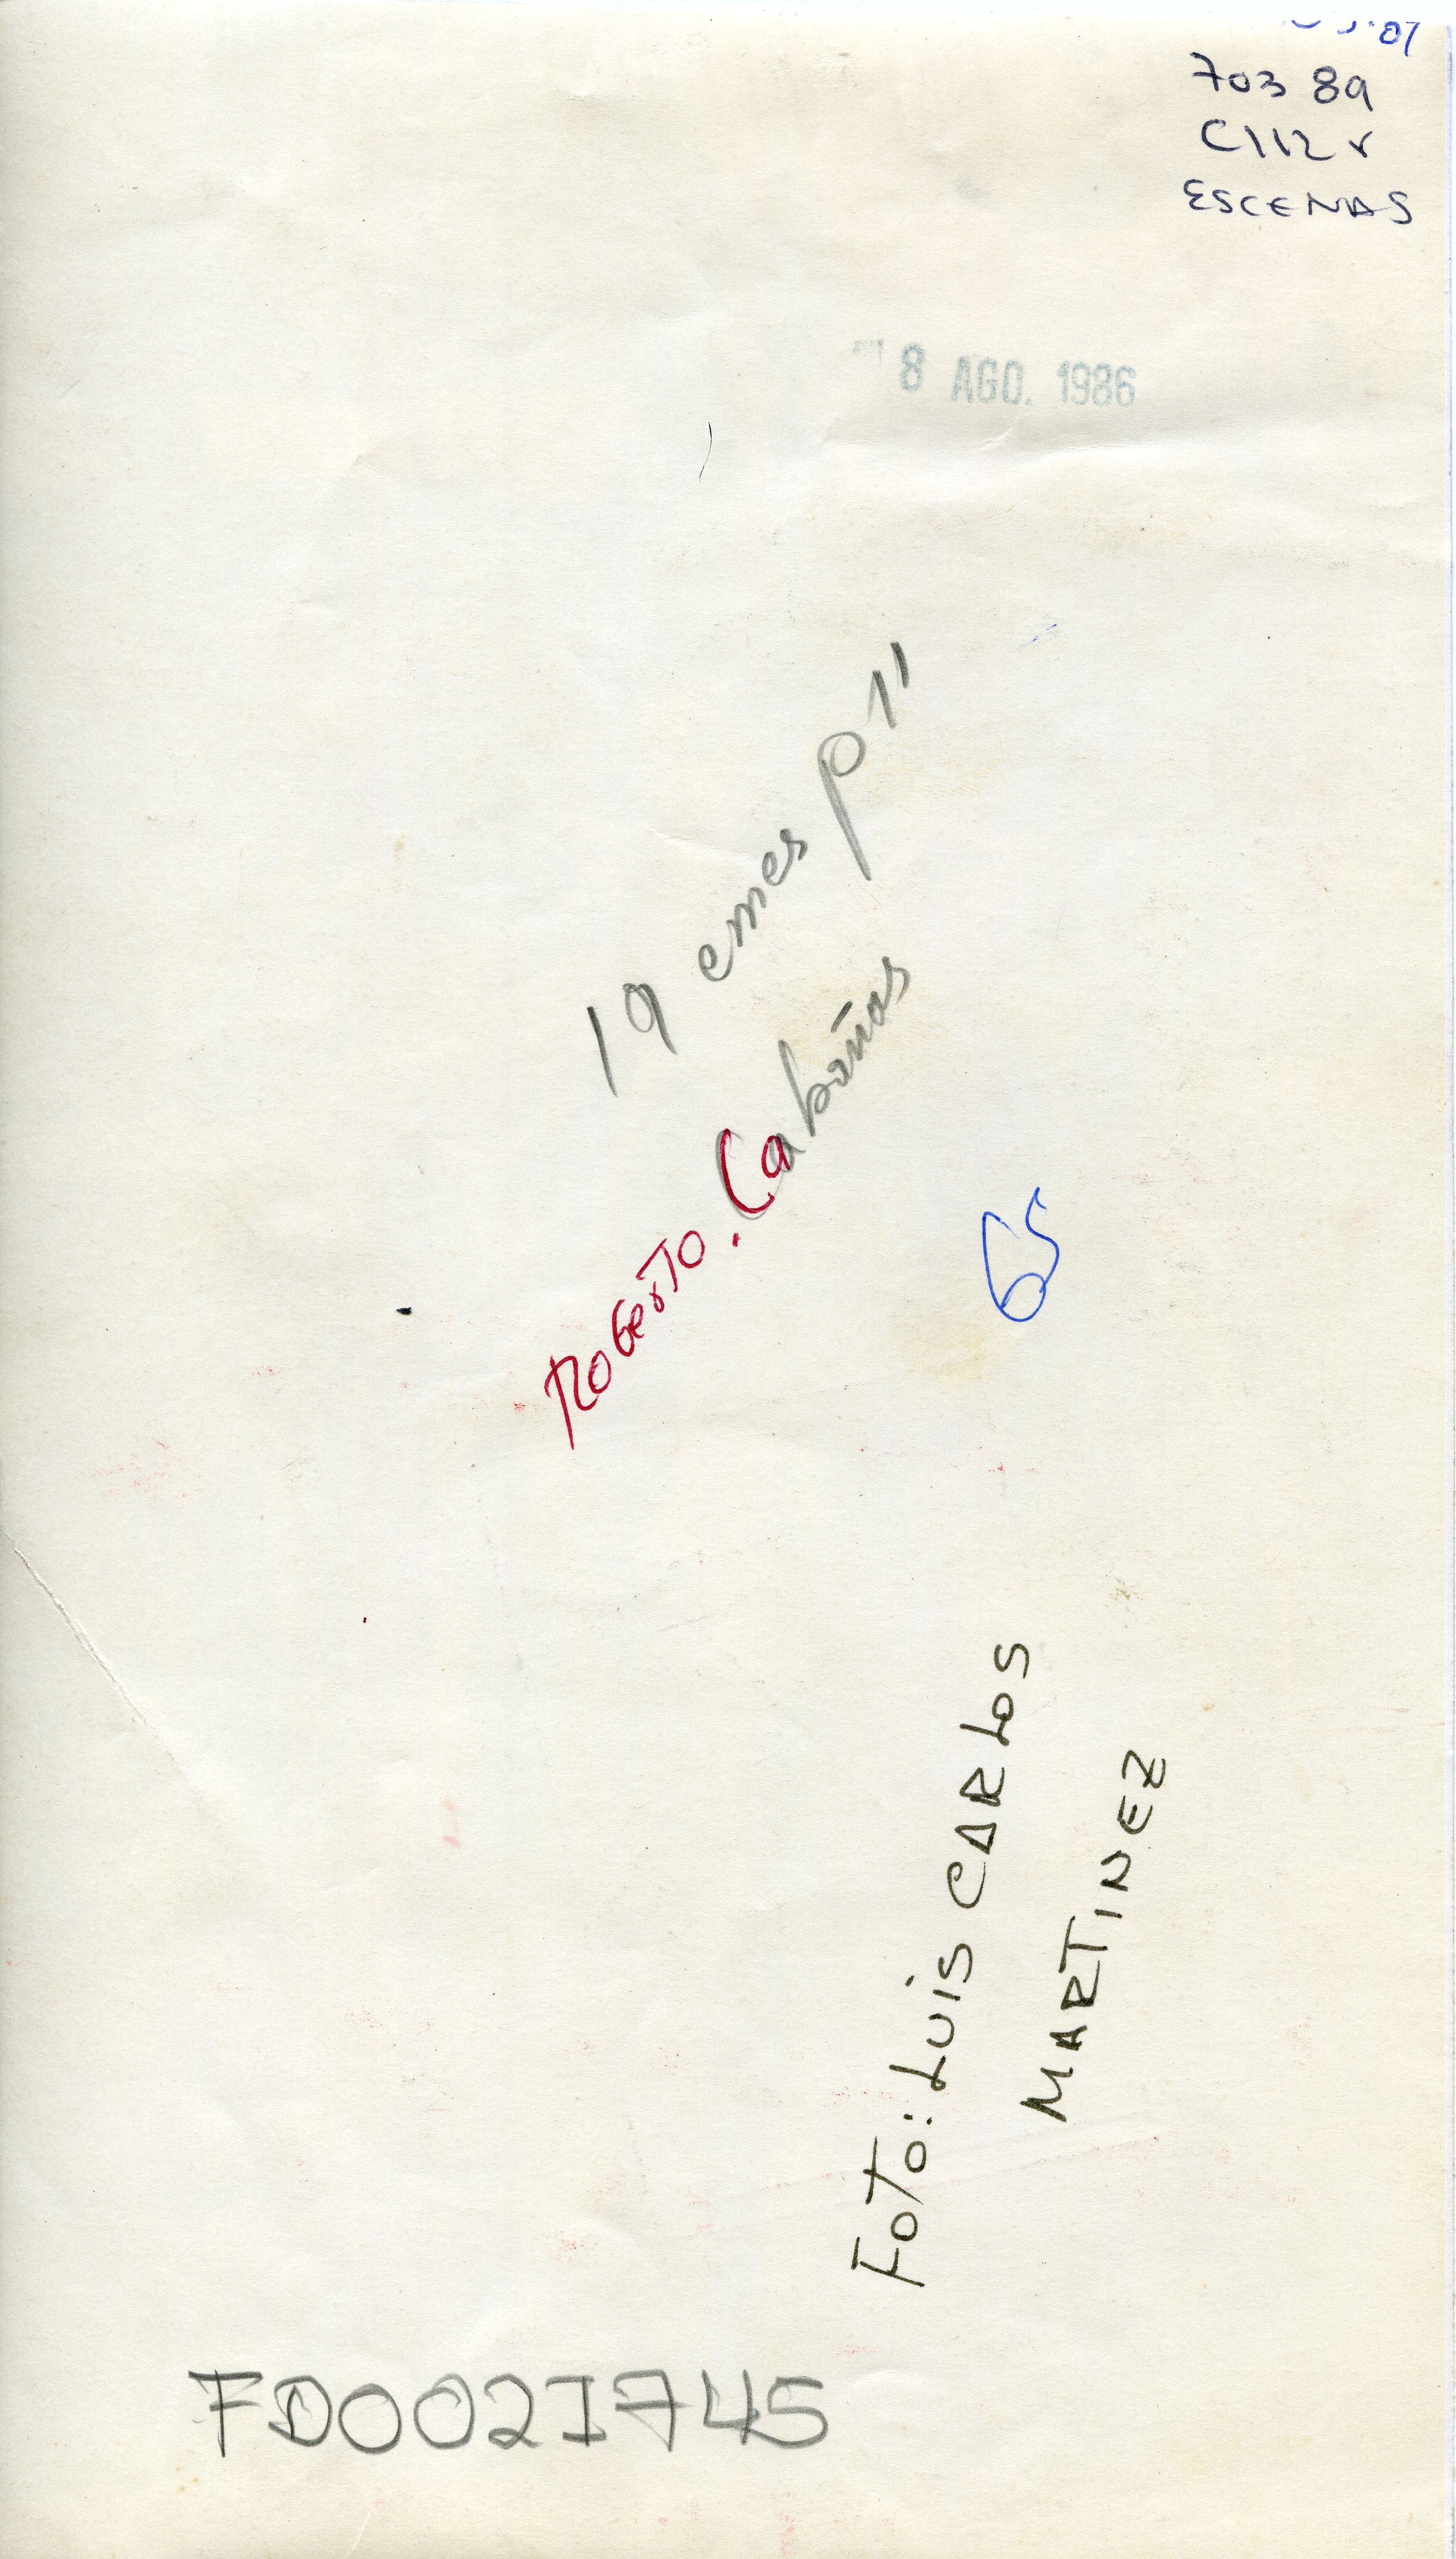 703 89
C112r
ESCENAS
8 AGO. 1986
19 emes p 11
Roberto. Cabañas
65
Foto: LUIS CARLOS
MARTINEZ
FD0021745